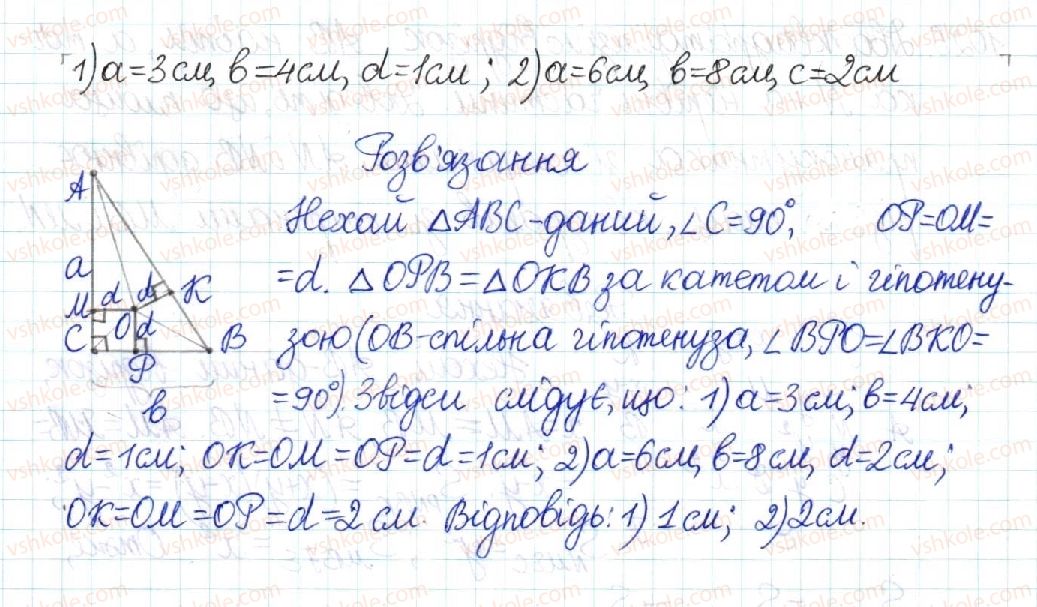 1) a=3см, в=4см, d=1см; 2) a=6см, в=8см, c=2см
Розв'язання
Нехай △ABC-даний, ∠C=90°, OP=OM=
=d. △OPB=△OKB за катетом і гіпотену-
зою (OB-спільна гіпотенуза, ∠BPO=∠BKO=
=90°). Звідси слідує, що: 1) a=3см; в=4см;
d=1см; OK=OM=OP=d=1см; 2) a=6см, в=8см, d=2см;
OK=OM=OP=d=2 см. Відповідь: 1) 1см; 2) 2см.
A
a
d d K
M
C O d B
P
в
vshkole.com